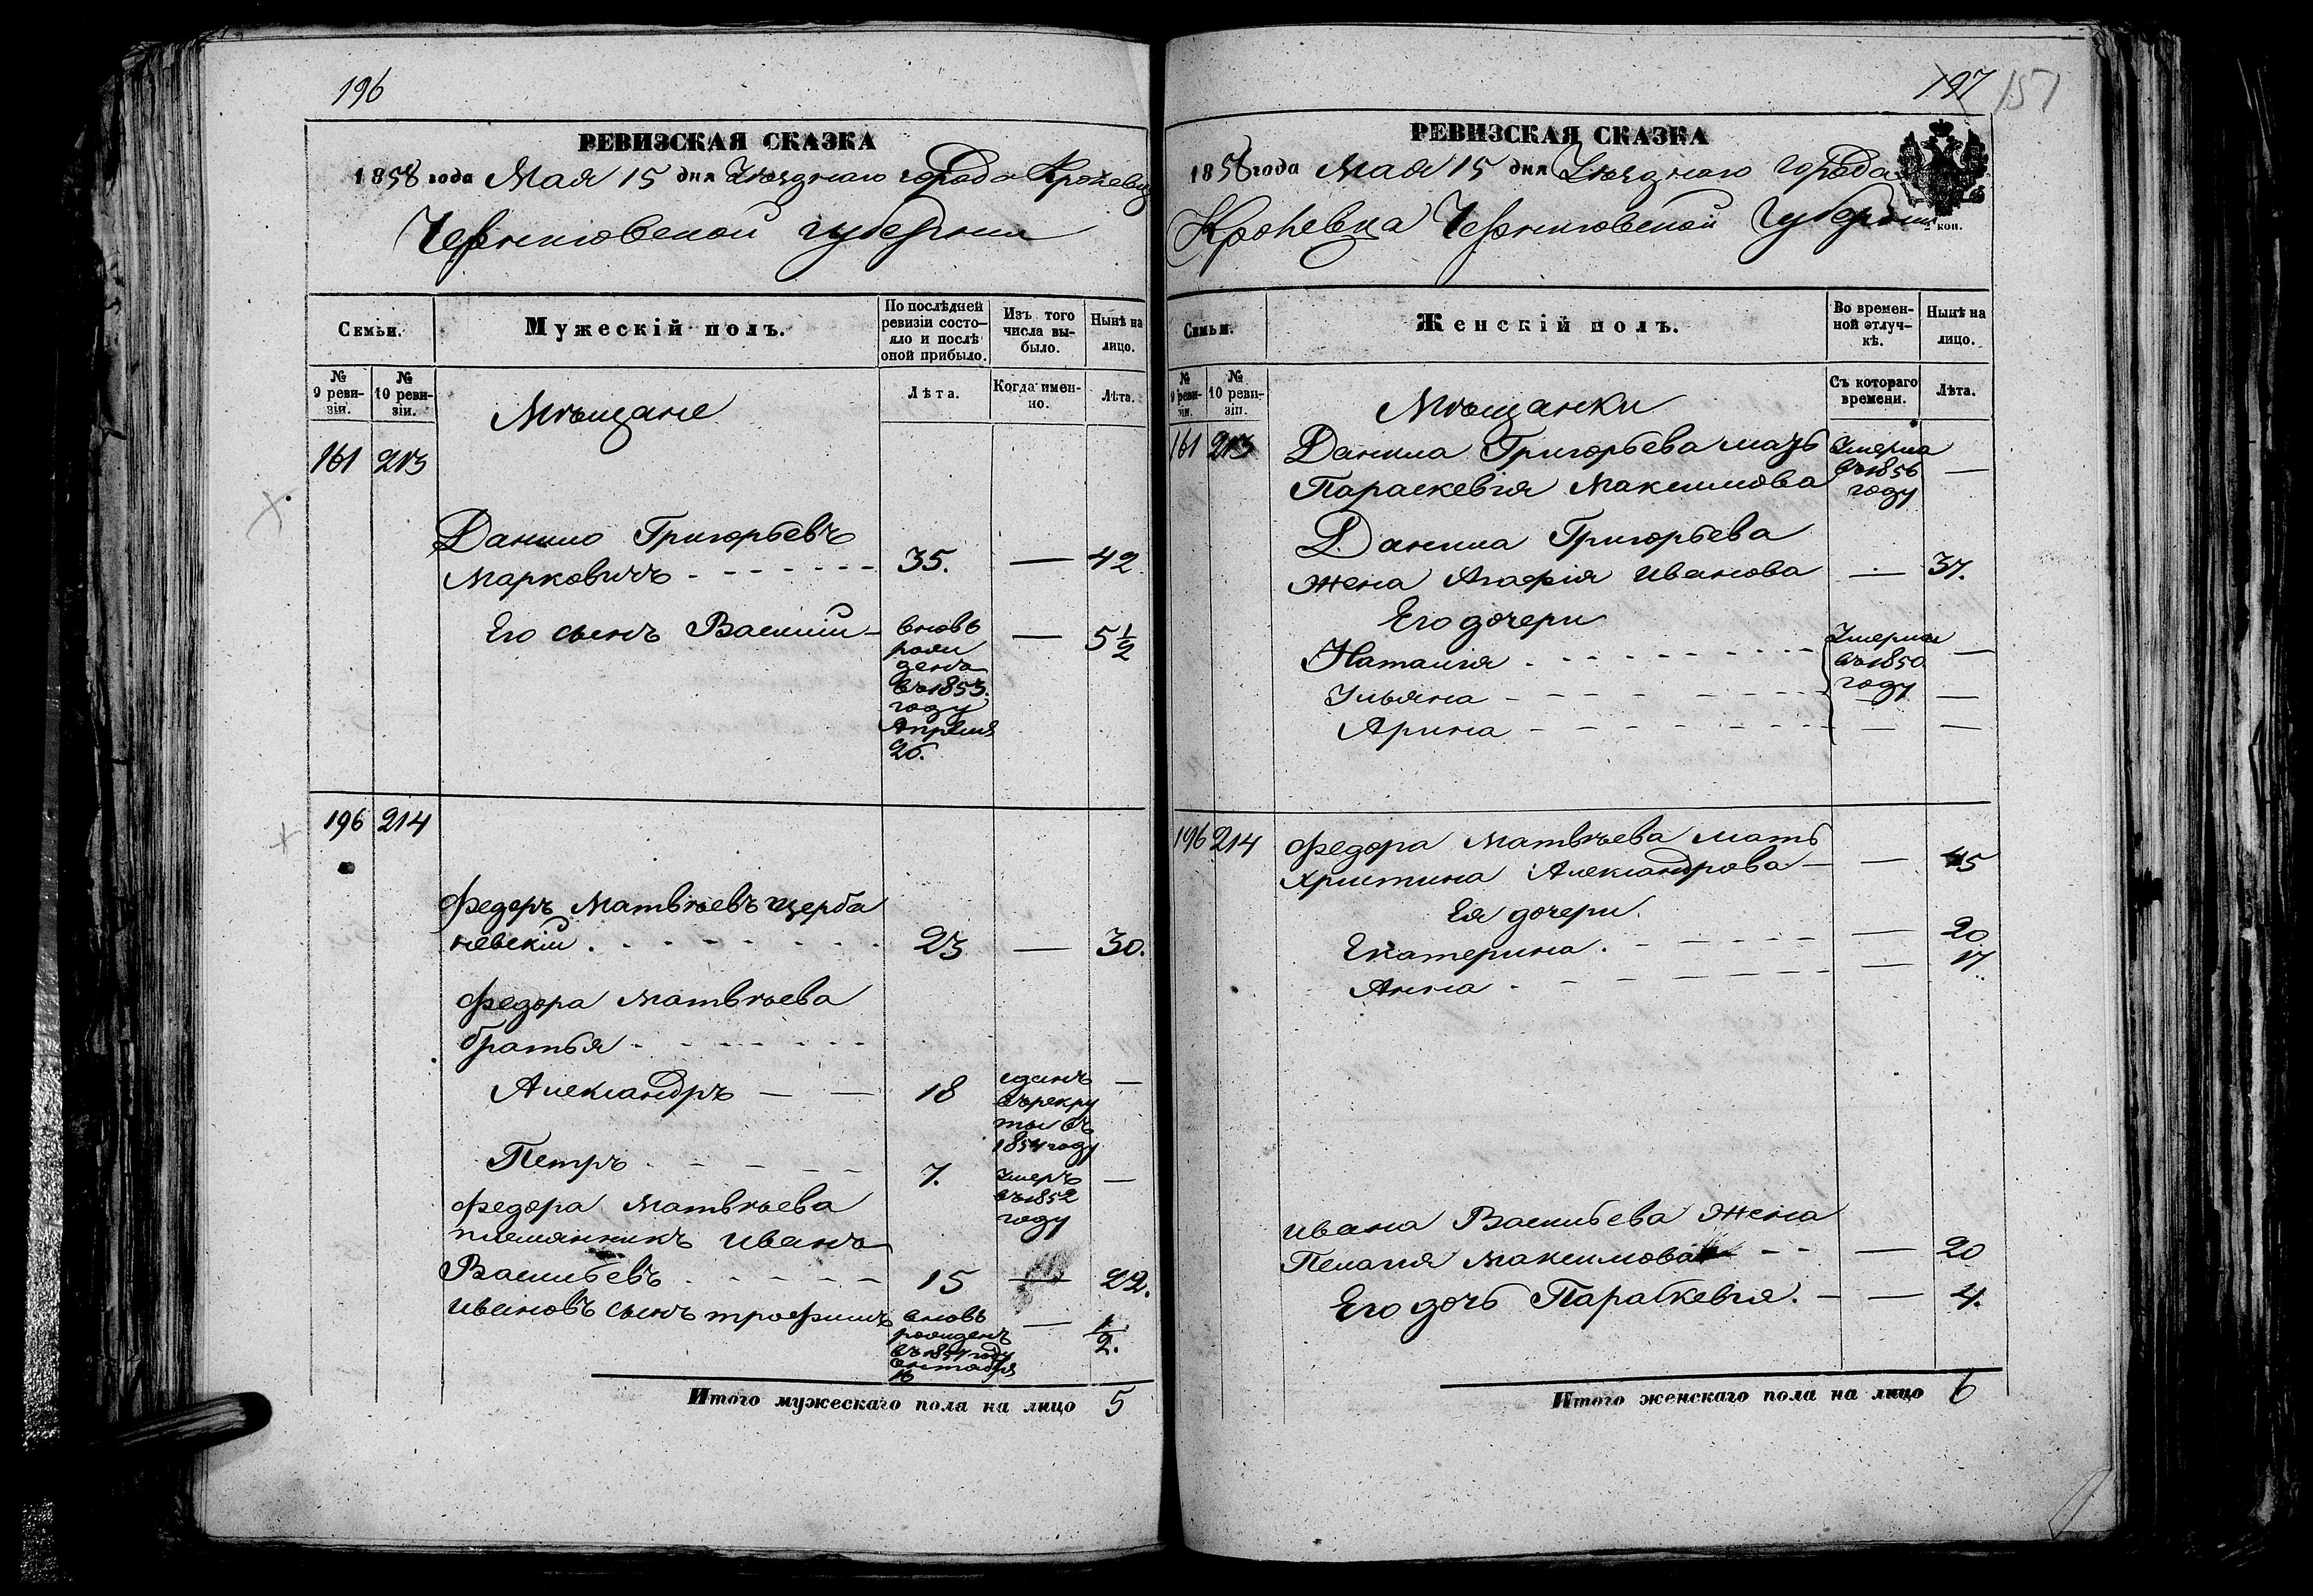 196
РЕВИЗСКАЯ СКАЗКА
1858 года Мая 15 дня Уѣзднаго города Кролевца
Черниговской губерніи
Семьи.
Мужескій полъ.
По послѣдней
ревизіи состо-
яло и послѣ
оной прибыло.
Изъ того
числа вы-
было.
Нынѣ на
лицо.
№
9 реви-
зіи.
№
10 реви-
зіи.
Лѣта.
Когда имен-
но.
Лѣта.
Мѣщане
161 213
Данило Григорьевъ
Марковичъ 35. — 42
Его сынъ Василій — 5 1/2
вновь
рожд
денъ
въ 1853.
году
Апреля
26.
196 214
Федоръ Матвѣевъ Щерба
невскій. 23 — 30.
Федора Матвѣева
братья
Александръ — — 18 —
сданъ
въ рекру
ты въ
1854 году
Петръ 7. —
Умеръ
въ 1852
году
Федора Матвѣева
племянникъ Иванъ
Васильевъ 15 — 22.
Ивановъ сынъ Трофимъ — 1/2.
вновь
рожденъ
въ 1857 году
Октября
16
Итого мужескаго пола на лицо 5
197 151
РЕВИЗСКАЯ СКАЗКА
1858 года Мая 15 дня Уѣзднаго города
Кролевца Черниговской Губерніи
2 коп.
Семьи.
Женскій полъ.
Во времен-
ной отлуч-
кѣ.
Нынѣ на
лицо.
№
9 реви-
зіи.
№
10 реви-
зіи.
Съ котораго
времени.
Лѣта.
Мѣщанки
161 213 Данила Григорьева мать
Параскевія Максимова —
Умерла
въ 1856
году
Данила Григорьева
жена Агафія Иванова — 37.
Его дочери
Наталія —
Ульяна —
Арина — —
Умерли
въ 1850
году
196 214 Федора Матвѣева мать
Христина Александрова — — 45
Ея дочери.
Екатерина. — 20
Анна — 17.
Ивана Васильева жена
Пелагія Максимова — 20
Его дочь Параскевія. — — 4.
Итого женскаго пола на лицо 6